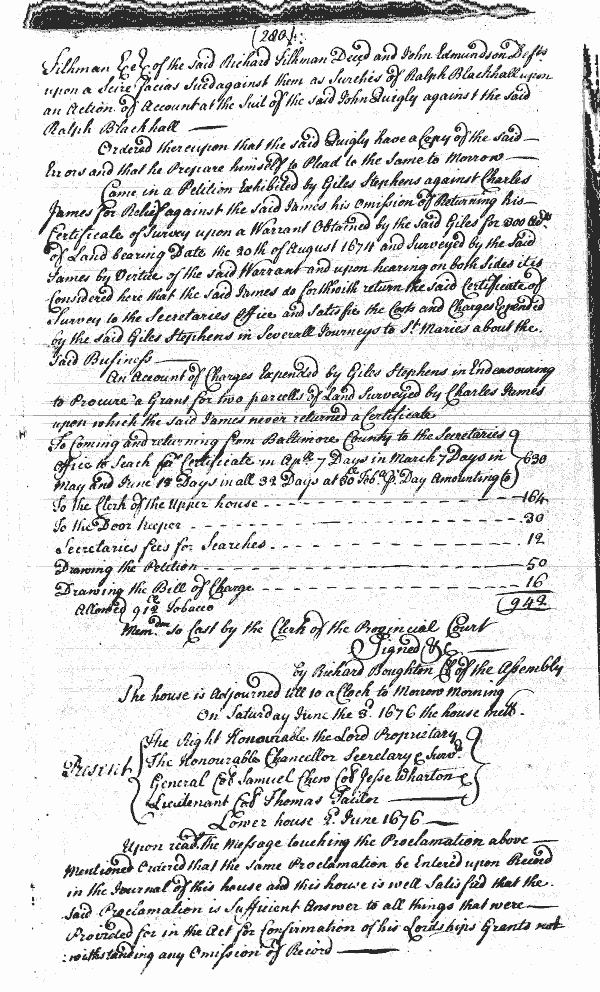 (280)
Silkman Exr. of the said Richard Silkman Decd. and John Edmundson Defts
upon a Scire facias Sued against them as Sureties of Ralph Blackhall upon
an Action of Account at the Suit of the said John Quigly against the said
Ralph Blackhall
Ordered thereupon that the said Quigly have a Copy of the said
Errors and that he Prepare himself to Plead to the Same to Morrow
Came in a Petition Exhibited by Giles Stephens against Charles
James for Relief against the said James his Omission of Returning his
Certificate of Survey upon a Warrant Obtained by the said Giles for 300 Acrs.
of Land bearing Date the 20th of August 1674 and Surveyed by the Said
James by Vertue of the said Warrant and upon hearing on both sides it is
Considered here that the said James do forthwith return the said Certificate of
Survey to the Secretaries Office and Satisfie the Costs and Charges Expended
by the said Giles Stephens in Severall Journeys to St. Maries about the
Said Business
An Account of Charges Expended by Giles Stephens in Endeavouring
to Procure a Grant for two parcells of Land Surveyed by Charles James
upon which the said James never returned a Certificate
To Coming and returning from Baltimore County to the Secretaries
Office to Seach for Certificate in Aprll. 7 Days in March 7 Days in
May and June 18 Days in all 32 Days at Tob. p. Day Amounting to 630
To the Clerk of the Upper house 164
To the Door keeper 30
Secretaries fees for Searches 12
Drawing the Petition 50
Drawing the Bill of Charge 16
Allowed 912 Tobacco 942
Memdm. So Cast by the Clerk of the Provincial Court
Signed &c
by Richard Boughton Cl of the Assembly
The house is Adjourned till 10 a Clock to Morrow Morning
On Saturday June the 3d. 1676 the house mett.
Present
The Right Honourable the Lord Proprietary
The Honourable Chancellor Secretary & Survr.
General Col Samuel Chew Col Jesse Wharton &
Lieutenant Col Thomas Tailor
Lower house 2d. June 1676
Upon read. the Message touching the Proclamation above
Mentioned Ordered that the same Proclamation be Entered upon Record
in the Journal of this house and this house is well Satisfied that the
said Proclamation is Sufficient Answer to all things that were
Provided for in the Act for Confirmation of his Lordships Grants not
withstanding any Omission of Record